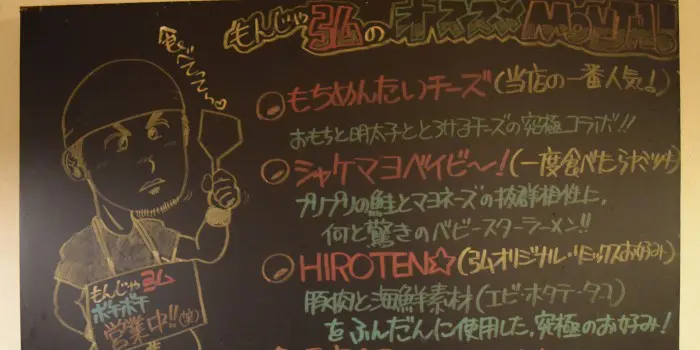 もんじゃ弘のオススメMONJA!!
もちめんたいチーズ(当店の一番人気♪)
おもちと明太子ととろけるチーズの究極コラボ!!
シャケマヨベイビ〜!(一度食べたら
プリプリの鮭とマヨネーズの抜群相性に、
何と驚きのベビースターラーメン!!
HIROTEN☆(弘オリジナル・リミックスお好み)
豚肉と海鮮素材(エビ・ホタテ・タコ)
をふんだんに使用した、究極のお好み!
もんじゃ弘
ボチボチ
営業中!!(笑)